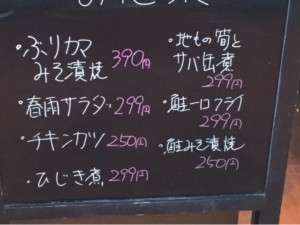 ・ぶりカマ
みそ漬焼 390円
・春雨サラダ 299円
・チキンカツ 250円
・ひじき煮 299円
・地もの筍と
サバ缶煮
299円
・鮭一口フライ
299円
・鮭みそ漬焼
250円